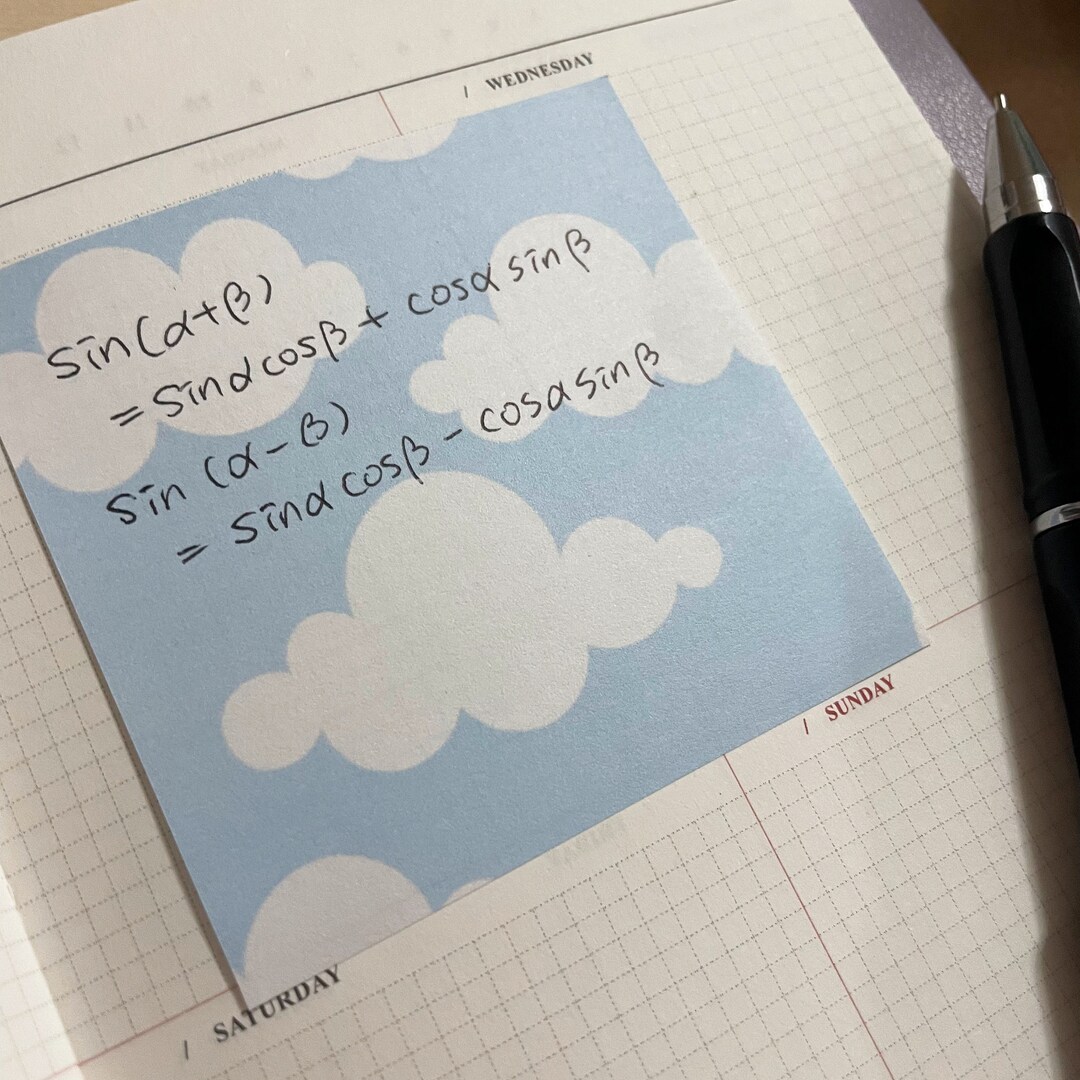 / WEDNESDAY
sin(α+β)
= sinα cosβ + cosα sinβ
sin (α-β)
= sinα cosβ - cosα sinβ
/ SUNDAY
/ SATURDAY